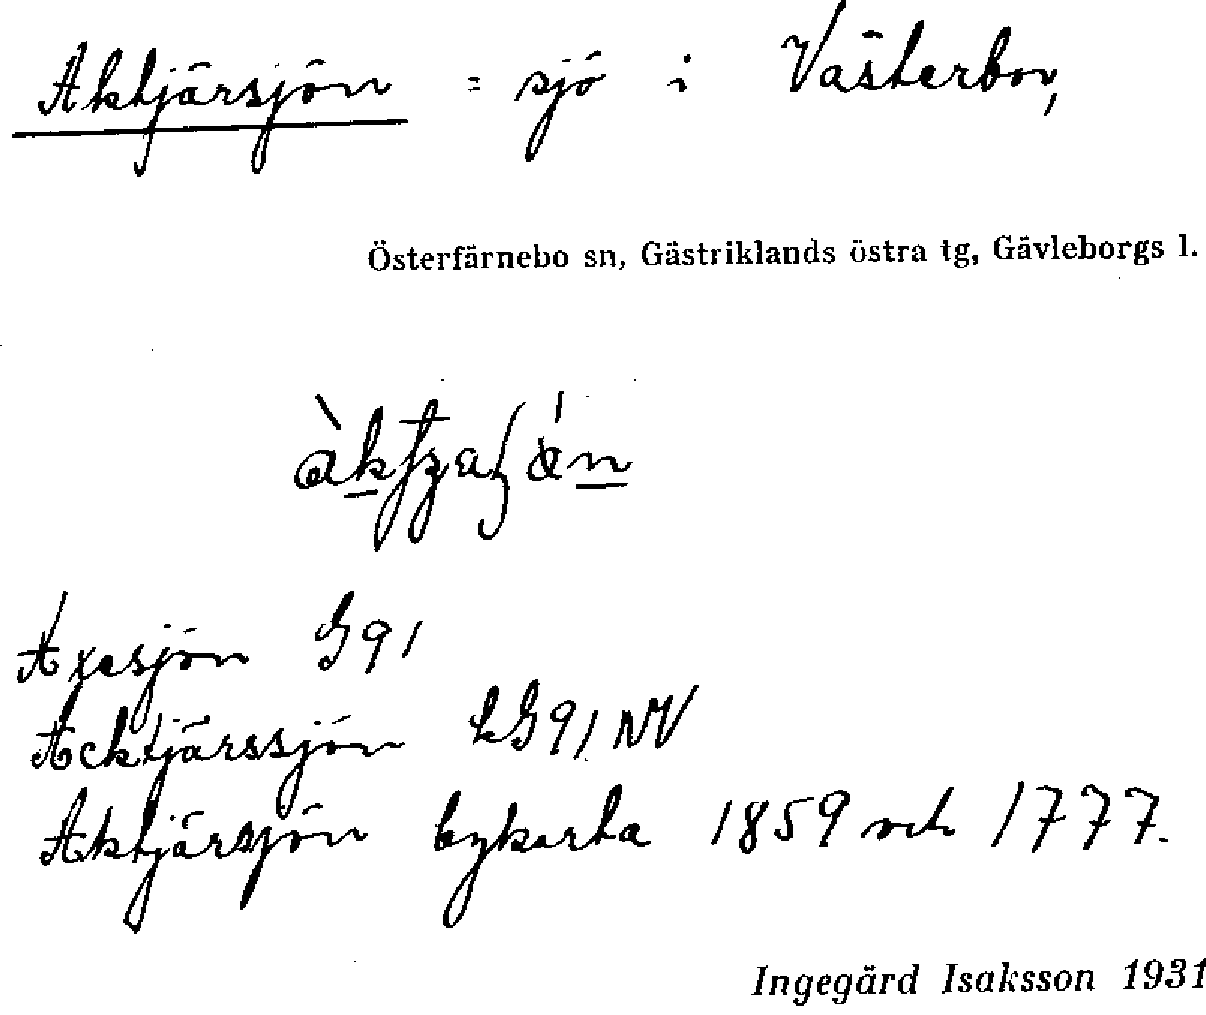 Aktjärsjön = sjö i Västerbor,
Österfärnebo sn, Gästriklands östra tg, Gävleborgs l.
Axesjön G91
Acktjärssjön LG91 NV
Aktjärsjön bykarta 1859 och 1777.
Ingegärd Isaksson 1931